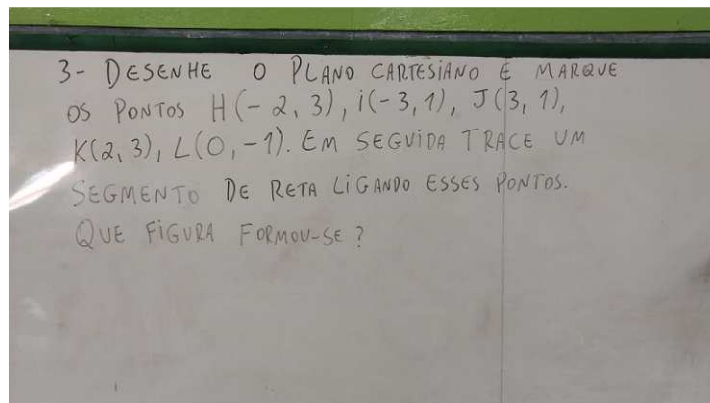 3- DESENHE O PLANO CARTESIANO E MARQUE
OS PONTOS H(-2,3), i(-3,1), J(3,1),
K(2,3), L(0,-1). EM SEGUIDA TRACE UM
SEGMENTO DE RETA LIGANDO ESSES PONTOS.
QUE FIGURA FORMOU-SE?